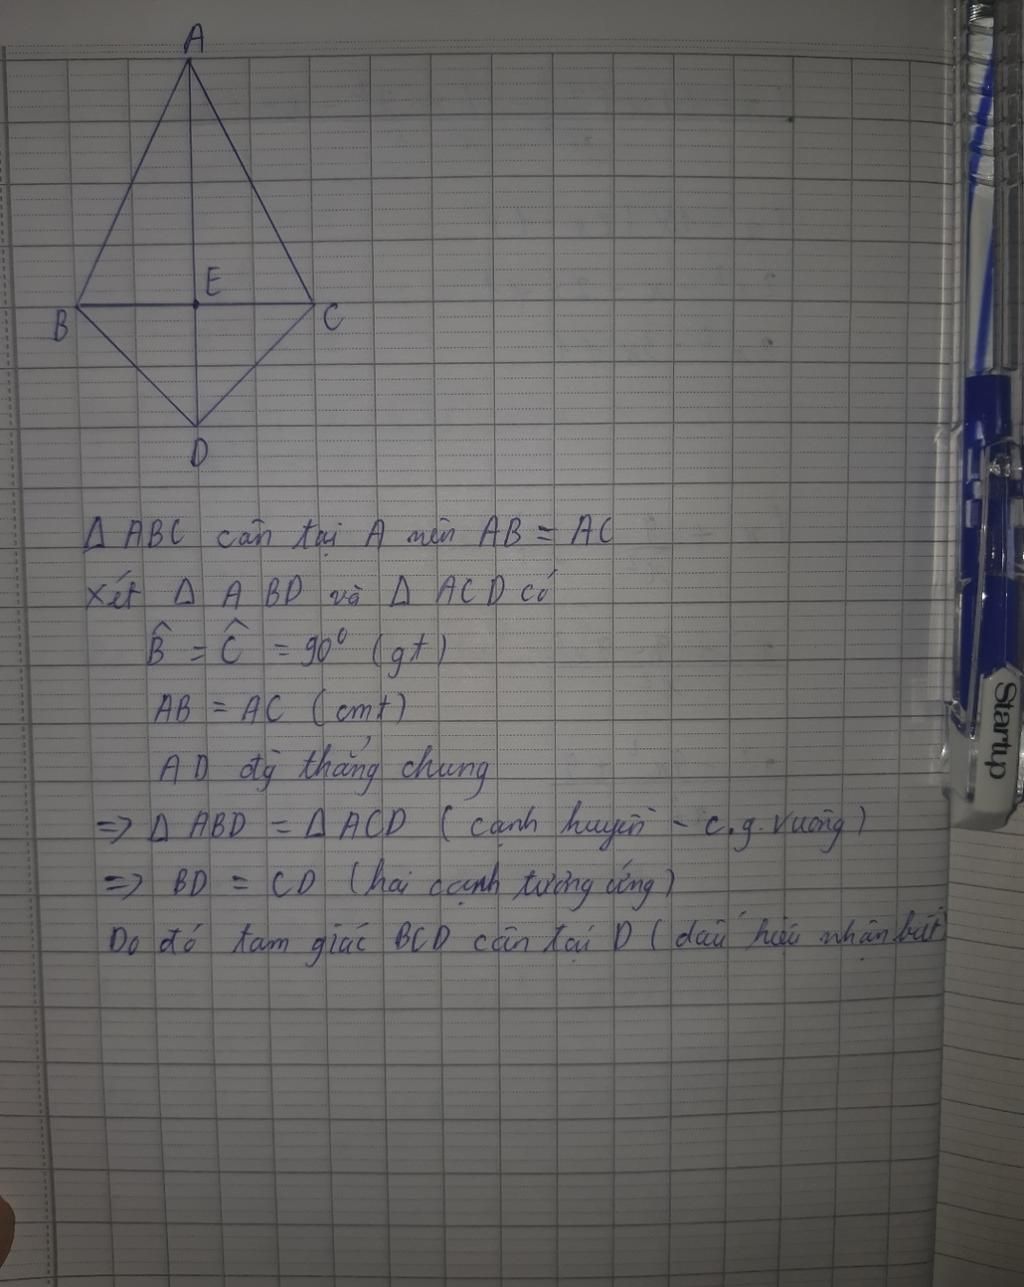 A
E
B
C
D
Δ ABC cân tại A nên AB = AC
Xét Δ ABD và Δ ACD có
B̂ = Ĉ = 90° (gt)
AB = AC (cmt)
AD đg thẳng chung
=> Δ ABD = Δ ACD (cạnh huyền - c.g.vuông)
=> BD = CD (hai cạnh tương ứng)
Do đó tam giác BCD cân tại D (dấu hiệu nhận biết)
Startup